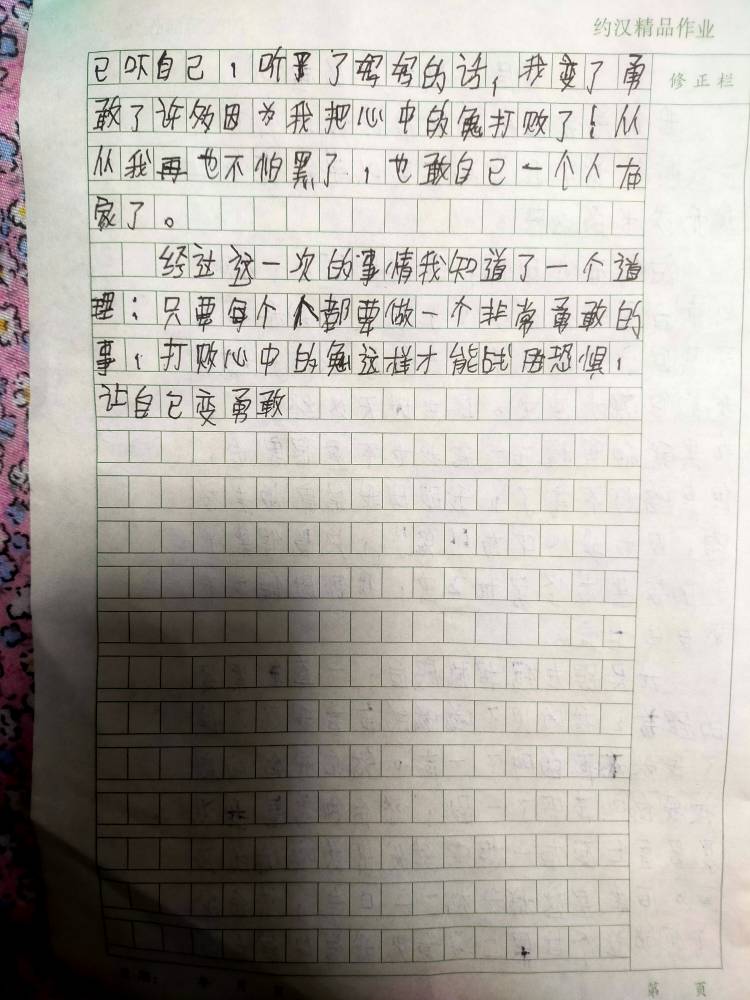 约汉精品作业
修正栏
已吓自己，听了妈妈的话，我变了勇
敢了许多因为我把心中的鬼打败了！从
从我再也不怕黑了，也敢自己一个人在
家了。
经过这一次的事情我知道了一个道
理：只要每个人都要做一个非常勇敢的
事，打败心中的鬼这样才能战胜恐惧，
让自已变勇敢
第 页